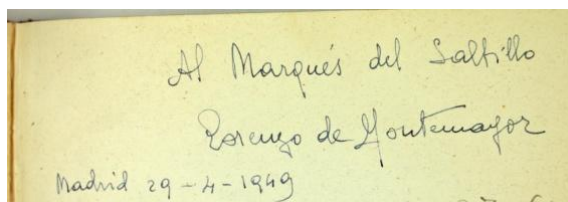 Al Marqués del Saltillo
Lorenzo de Montemayor
Madrid 29-4-1949